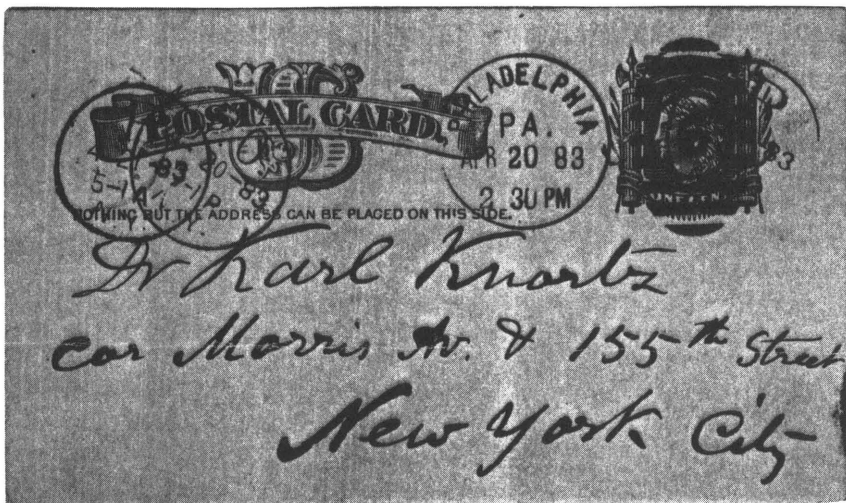 US
POSTAL CARD.
PHILADELPHIA
PA.
APR 20 83
2 30 PM
20 83
5-1A
83
ONE CENT
NOTHING BUT THE ADDRESS CAN BE PLACED ON THIS SIDE.
Dr Karl Knortz
cor Morris Av. & 155th Street
New York City